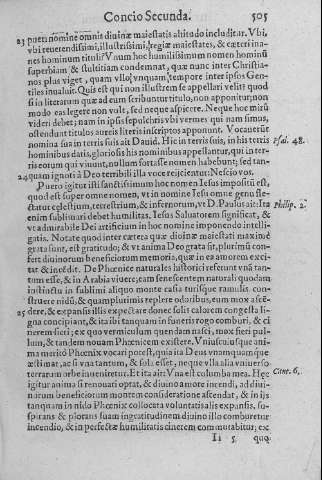 Concio Secunda. 505
23 pueri nomine omnis diuinæ maiestatis altitudo includitur. Vbi,
vbi reuerendissimi, illustrissimi, regiæ maiestates, & cæteri ina-
nes hominum tituli? Vnum hoc humilissimum nomen hominũ
superbiam & stultitiam condemnat, quæ nunc inter Christia-
nos plus viget, quam vllo vnquam tempore inter ipsos Gen-
tiles inualuit. Quis est qui non illustrem se appellari velit? quod
si in literarum quæ ad eum scribuntur titulo, non apponitur, non
modo eas legere non vult, sed neque aspicere. Neque hoc mirũ
videri debet; nam in ipsis sepulchris vbi vermes qui nam simus,
ostendunt titulos aureis literis inscriptos apponunt. Vocauerũt
nomina sua in terris suis ait Dauid. Hic in terris suis, in his terris Psal. 48.
hominibus datis, gloriosis his nominibus appellantur, qui in ter-
ris eorum qui viuunt, nullum fortasse nomen habebunt; sed tan-
24 quam ignoti à Deo terribili illa voce reijcientur: Nescio vos.
Puero igitur isti sanctissimum hoc nomen Iesus impositũ est,
quod est super omne nomen, vt in nomine Iesu omne genu fle-
ctatur cælestium, terrestrium, & infernorum, vt D. Paulus ait: Ita Philip. 2.
enim sublimari debet humilitas. Iesus Saluatorem significat, &
vt admirabile Dei artificium in hoc nomine imponendo intelli-
gatis. Notate quod inter cætera quæ diuinæ maiestati maximè
grata sunt, est gratitudo; & vt anima Deo grata sit, plurimũ con-
fert diuinorum beneficiorum memoria, quæ in ea amorem exci-
tat & incẽdit. De Phœnice naturales historici referunt vnã tan-
tum esse, & in Arabia viuere; eam senescentem naturali quodam
instinctu in sublimi aliquo monte casia turisque ramulis con-
struere nidũ, & quamplurimis replere odoribus, eum mox ascẽ-
25 dere, & expansis illis expectare donec solis calorem congesta li-
gna concipiant, & ita ibi tanquam in funeris rogo comburi, & ci
nerem fieri; ex quo vermiculum quendam nasci, mox fieri pul-
lum, & tandem nouam Phœnicem existere. Vniuscuiusque ani-
ma meritò Phœnix vocari potest, quia ita Deus vnamquamque
æstimat, ac si vna tantum, & sola esset, neque vlla alia vniuerso
terrarum orbe inueniretur. Et ita ait: Vna est columba mea. Hęc Cant. 6.
igitur anima si renouari optat, & diuino amore incendi, ad diui-
narum beneficiorum montem consideratione ascendat, & in ijs
tanquam in nido Phœnix collocata voluntatis alis expansis, su-
spirans & plorans suam ingratitudinem diuino illo comburetur
incendio, & in perfectæ humilitatis cinerem commutabitur; ex
Ii 5 quo